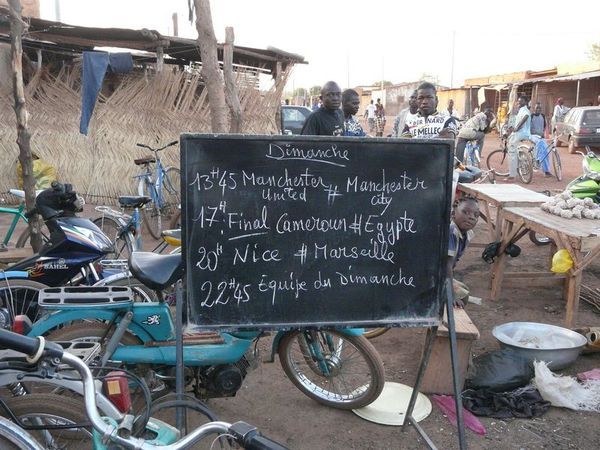 Dimanche
13H45 Manchester united # Manchester city
17H Final Cameroun # Egypte
20H Nice # Marseille
22H45 Equipe du Dimanche
BERNARD
MELLE